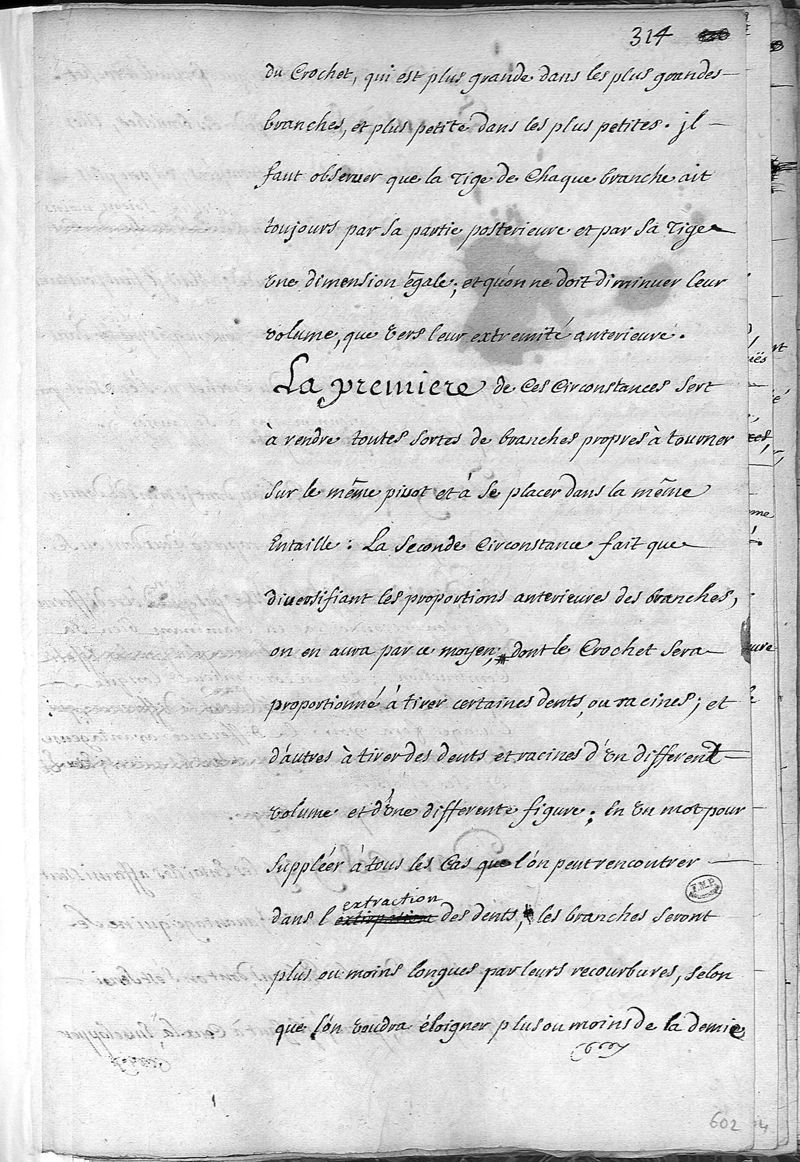 314
du Crochet, qui est plus grande dans les plus grandes
branches, et plus petite dans les plus petites. jl
faut obseruer que la Tige de Chaque branche ait
toujours par sa partie posterieure et par sa Tige
vne dimension égale; et qu'on ne doit diminuer leur
volume, que vers leur extremité anterieure.
La premiere de Ces Circonstances sert
à rendre toutes sortes de branches propres à tourner
sur le même piuot et à se placer dans la même
Entaille: La seconde Circonstance fait que
diuersifiant les proportions anterieures des branches,
on en aura par ce moyen, dont le Crochet sera
proportionné à tirer certaines dents, ou racines; et
d'autres à tirer des dents et racines d'vn different
volume et d'vne differente figure; En vn mot pour
suppléer à tous les Cas que l'on peut rencontrer
extraction
dans l' extirpation des dents, les branches seront
plus ou moins longues par leurs recourbures, selon
que l'on voudra éloigner plus ou moins de la demie
F.M.P.
602